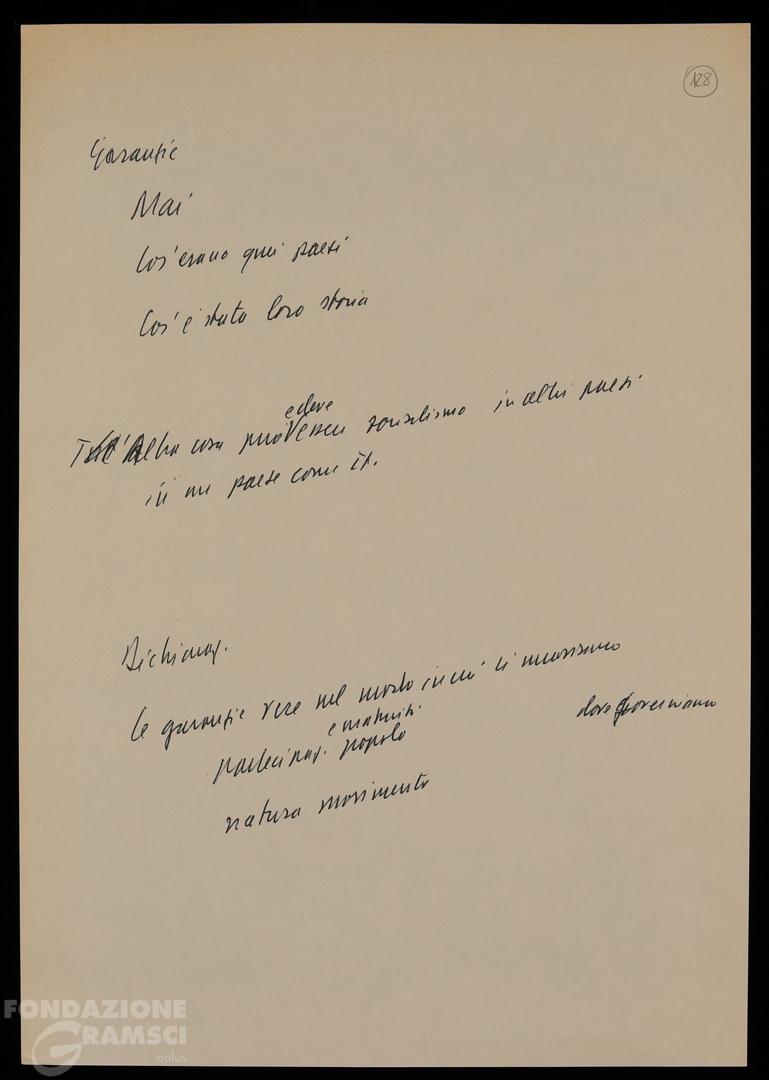 128
Garanzie
Mai
Cos'erano quei paesi
Cos'è stata loro storia
e deve
Altra cosa può essere socialismo in altri paesi
in un paese come it.
Dichiaraz.
le garanzie vere nel modo in cui ci muoviamo
dove governiamo
e maturità
partecipaz. popolo
natura movimento
FONDAZIONE
GRAMSCI
onlus